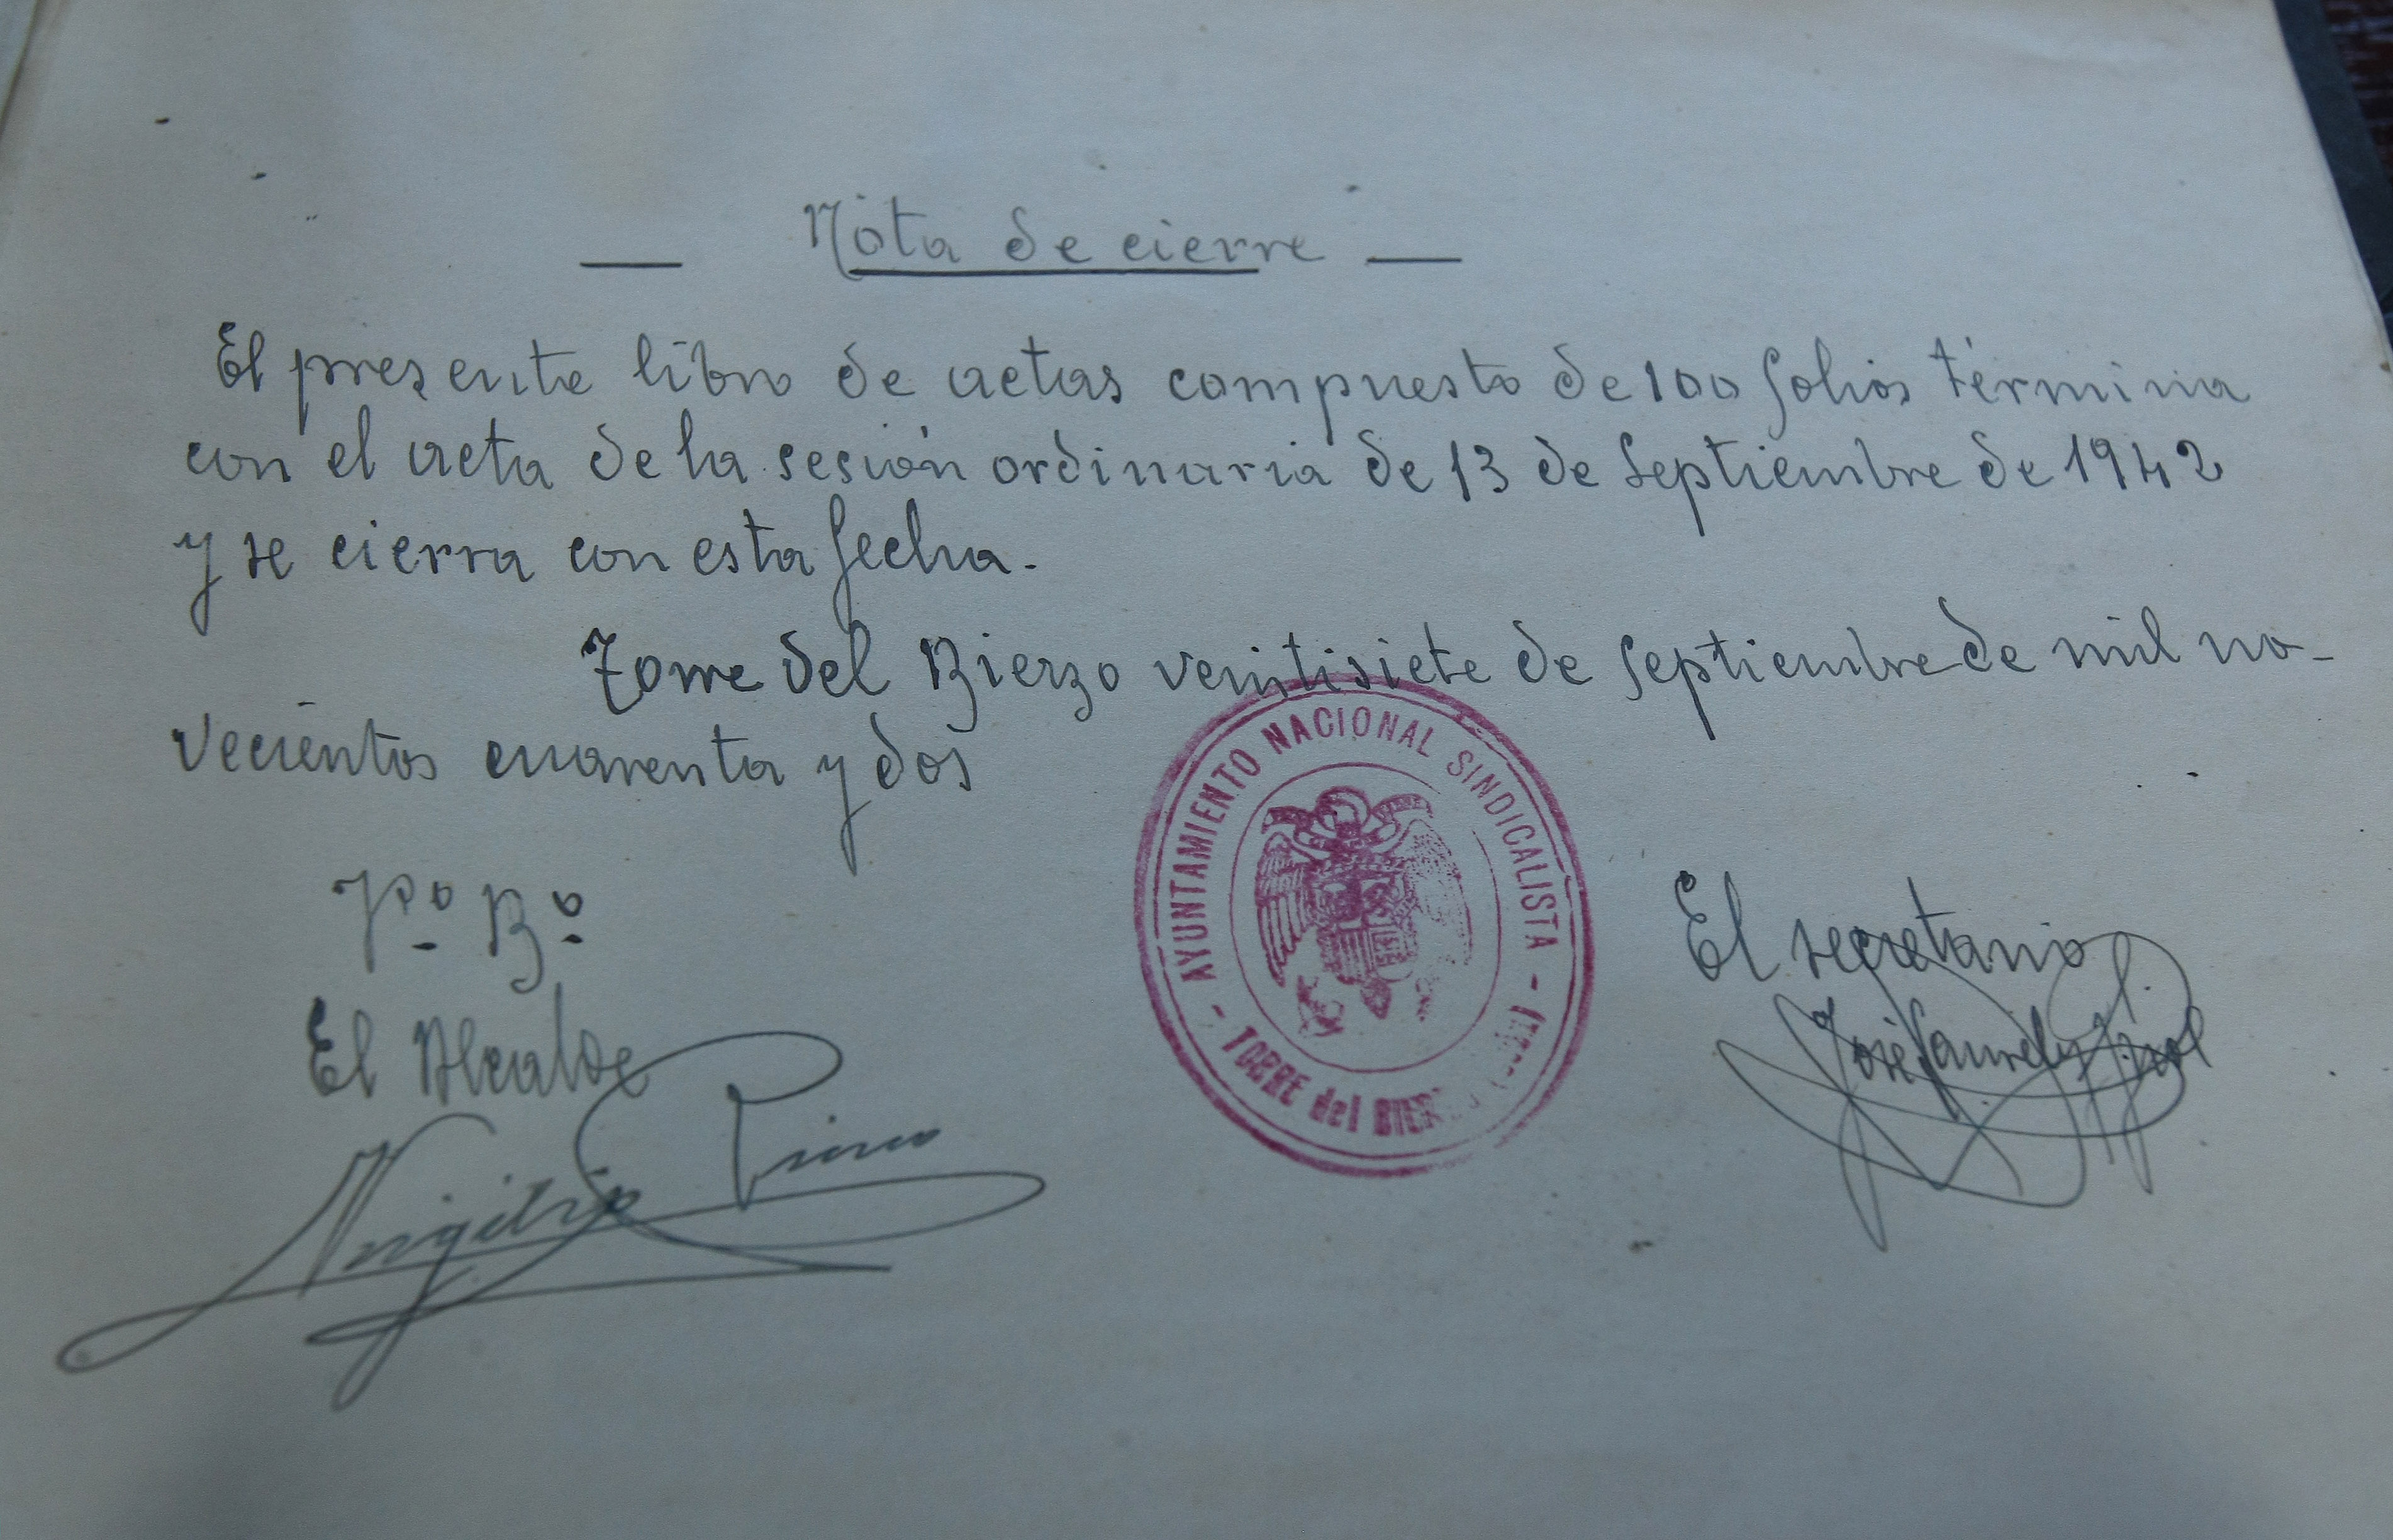 Nota de cierre
El presente libro de actas compuesto de 100 folios términa
con el acta de la sesión ordinaria de 13 de Septiembre de 1942
y se cierra con esta fecha.
Torre del Bierzo ventisiete de Septiembre de mil no-
vecientos cuarenta y dos
Vº Bº
El Alcalde
El secretario
José
AYUNTAMIENTO NACIONAL SINDICALISTA
TORRE del